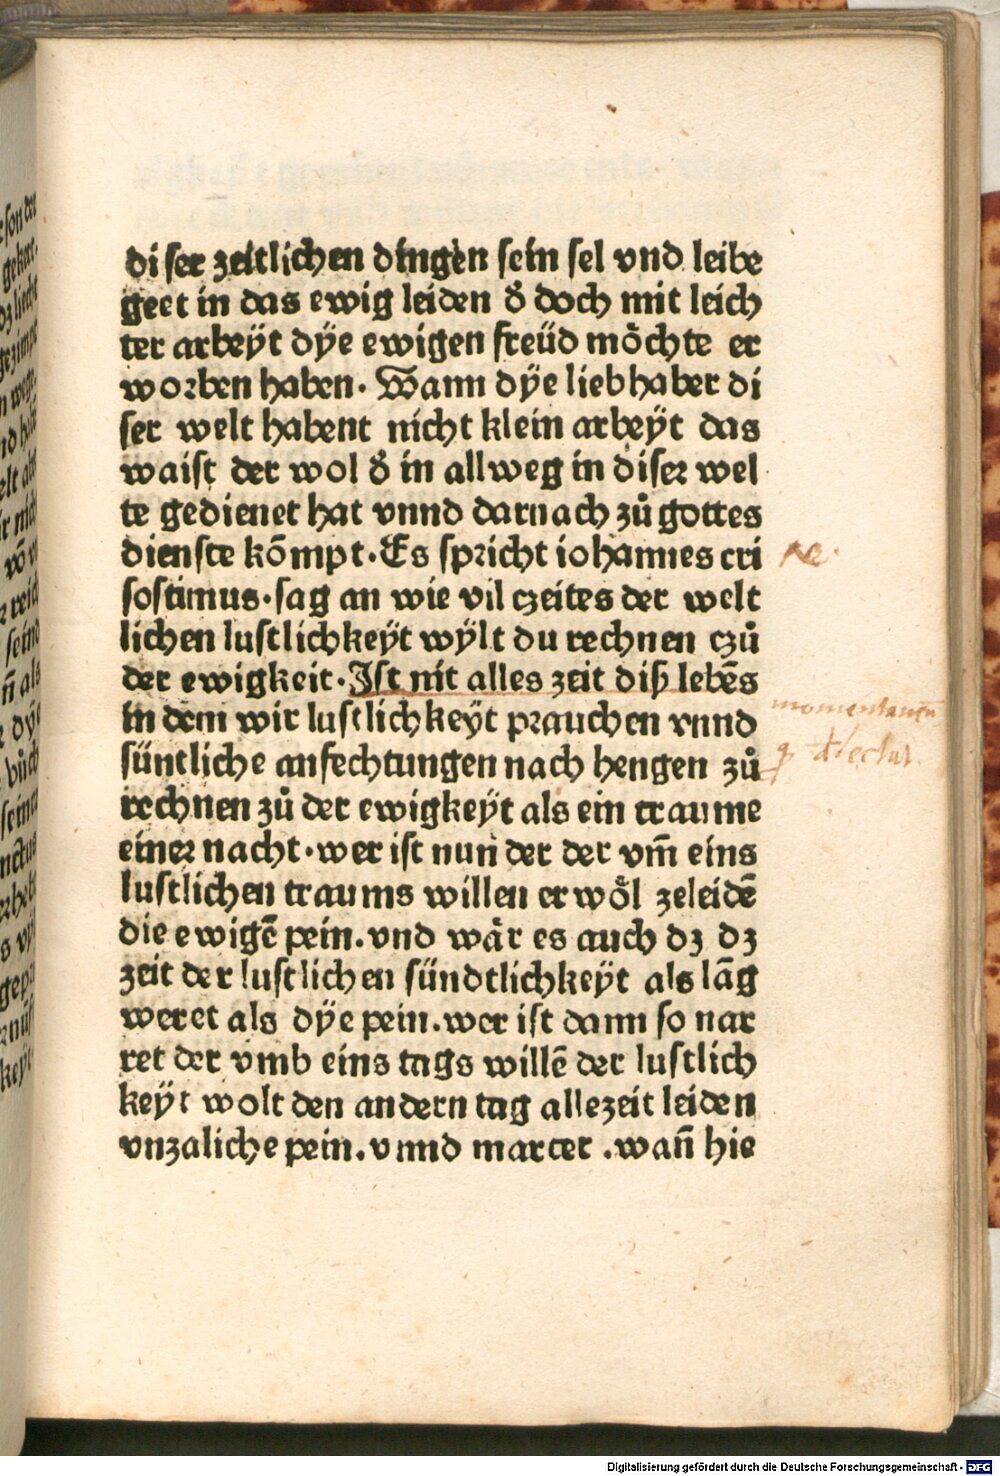 diser zeitlichen dingen sein sel vnd leibe
geet in das ewig leiden d̕ doch mit leich
ter arbeÿt dÿe ewigen freüd möchte er
worben haben. Wann dÿe liebhaber di
ser welt habent nicht klein arbeÿt das
waist der wol d̕ in allweg in diser wel
te gedienet hat vnnd darnach zů gottes
dienste kōmpt. Es spricht iohannes cri
sostimus. sag an wie vil czeites der welt
lichen lustlichkeÿt wÿlt du rechnen czů
der ewigkeit. Jst nit alles zeit diß lebēs
in dem wir lustlichkeÿt prauchen vnnd
süntliche anfechtungen nach hengen zů
rechnen zů der ewigkeÿt als ein traume
einer nacht. wer ist nun der der vm̄ eins
lustlichen traums willen erwöl zeleidē
die ewigē pein. vnd wär es auch dz dz
zeit der lustlichen sündtlichkeÿt als lāg
weret als dÿe pein. wer ist dann so nar
ret der vmb eins tags willē der lustlich
keÿt wolt den andern tag allezeit leiden
vnzaliche pein. vnnd marter. wan̄ hie
momentaneū
Digitalisierung gefördert durch die Deutsche Forschungsgemeinschaft - DFG